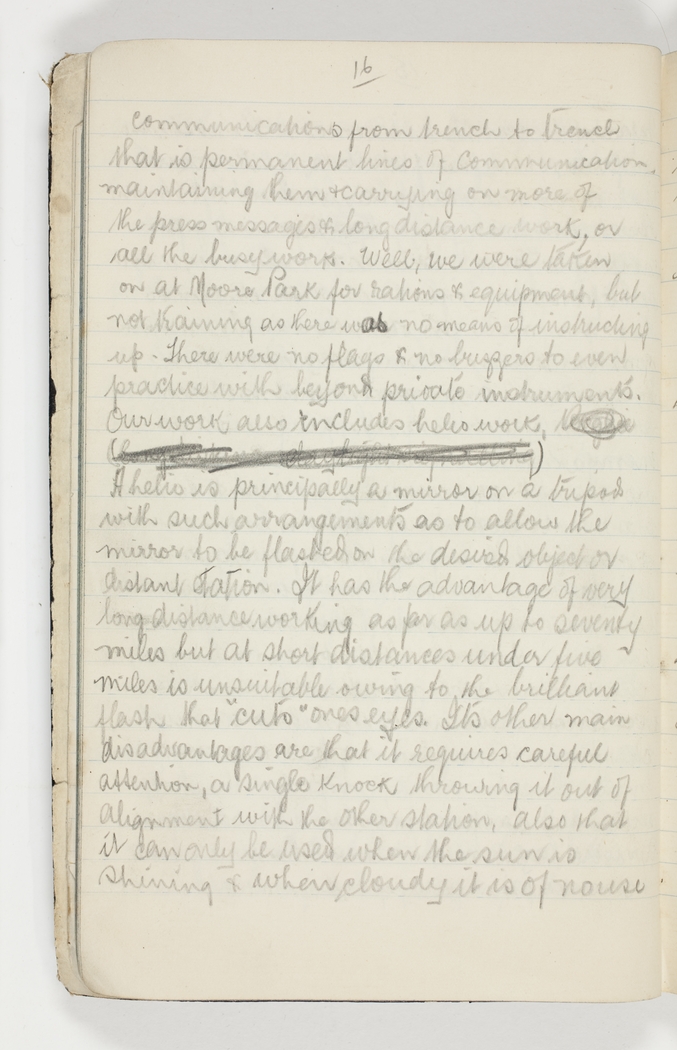 16
communications from trench to trench
that is permanent lines of communication,
maintaining them & carrying on more of
the press messages & long distance work, or
all the busy work. Well, we were taken
on at Moore Park for rations & equipment, but
not training as there was no means of instructing
up. There were no flags & no buzzers to even
practice with beyond private instruments.
Our work also includes helio work,
A helio is principally a mirror on a tripod
with such arrangements as to allow the
mirror to be flashed on the desired object or
distant station. It has the advantage of very
long distance working as far as up to seventy
miles but at short distances under five
miles is unsuitable owing to the brilliant
flash that "cuts" ones eyes. Its other main
disadvantages are that it requires careful
attention, a single knock throwing it out of
alignment with the other station, also that
it can only be used when the sun is
shining & when cloudy it is of no use